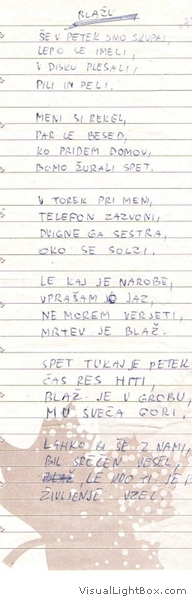 BLAŽU
ŠE V PETEK SMO SKUPAJ,
LEPO SE IMELI,
V DISKU PLESALI,
PILI IN PELI.
MENI SI REKEL,
PAR LE BESED,
KO PRIDEM DOMOV,
BOMO ŽURALI SPET.
V TOREK PRI MENI,
TELEFON ZAZVONI,
DVIGNE GA SESTRA,
OKO SE SOLZI.
LE KAJ JE NAROBE,
VPRAŠAM JAZ,
NE MOREM VERJETI,
MRTEV JE BLAŽ.
SPET TUKAJ JE PETEK
ČAS RES HITI,
BLAŽ JE V GROBU,
MU SVEČA GORI,
LAHKO BI ŠE Z NAMI,
BIL SREČEN VESEL,
LE KDO TI JE
ŽIVLJENJE VZEL.
VisualLightBox.com